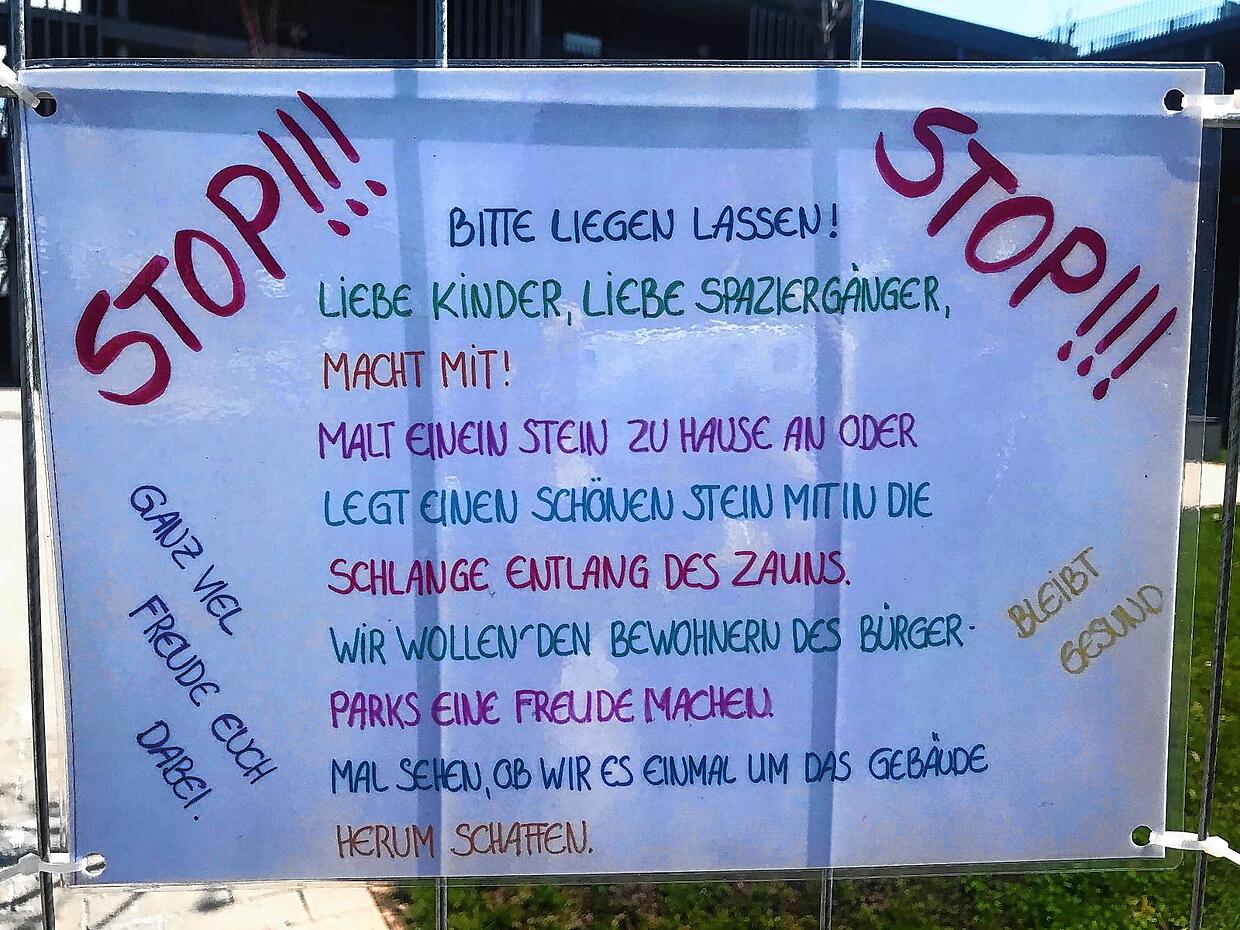 STOP!!!
STOP!!!
BITTE LIEGEN LASSEN!
LIEBE KINDER, LIEBE SPAZIERGÄNGER,
MACHT MIT!
MALT EINEIN STEIN ZU HAUSE AN ODER
LEGT EINEN SCHÖNEN STEIN MIT IN DIE
SCHLANGE ENTLANG DES ZAUNS.
WIR WOLLEN DEN BEWOHNERN DES BÜRGER-
PARKS EINE FREUDE MACHEN.
MAL SEHEN, OB WIR ES EINMAL UM DAS GEBÄUDE
HERUM SCHAFFEN.
GANZ VIEL
FREUDE EUCH
DABEI.
BLEIBT
GESUND